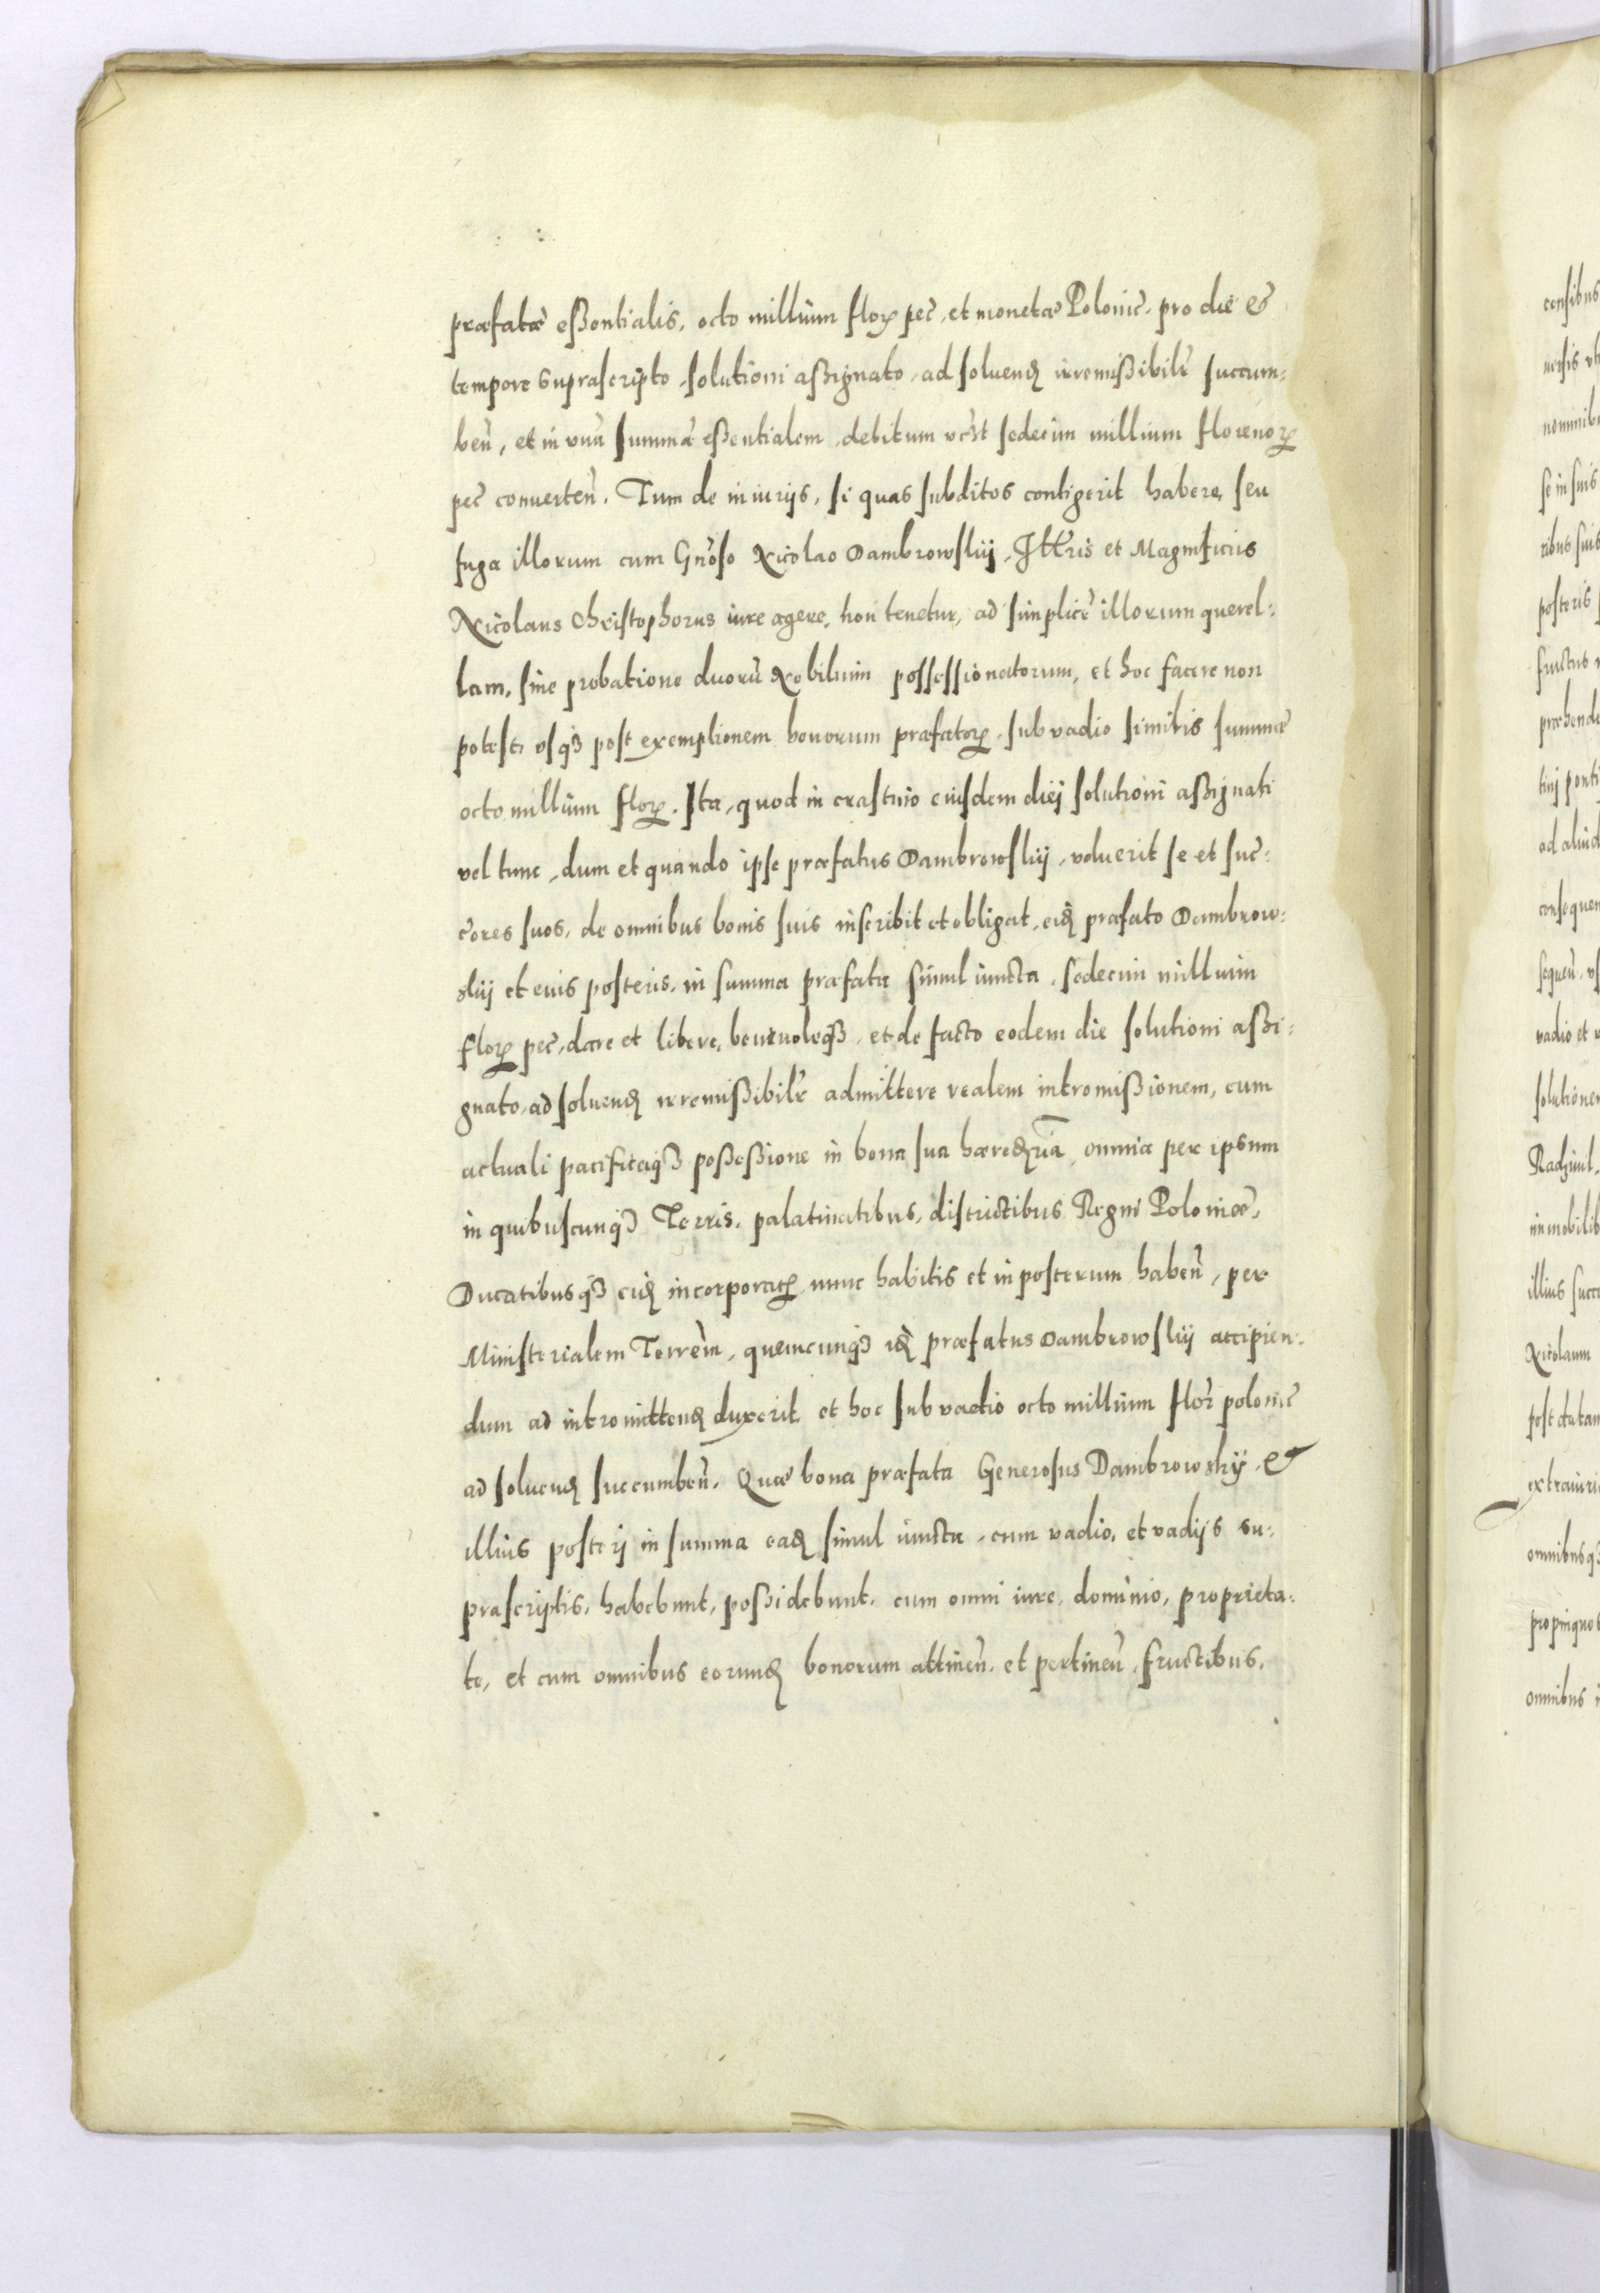 præfatæ eßentialis, octo millium floꝝ pec̃, et monetæ Polonic̃, pro die et
tempore suprascripto solutioni aßignato, ad soluenđ irremißibilr̃ succum=
ben̄, et in vnū summā eßentialem, debitum vc̃zt sedecim millium florenoꝝ
pec̃ conuerten̄. Tum de iniurijs, si quas subditos contigerit habere, seu
fuga illorum cum Gn̄oso Nicolao Dambrowskij, Ill̃ris et Magnificus
Nicolaus Christophorus iure agere, non tenetur, ad simplicē illorum querel=
lam, sine probatione duorū Nobilium possessionatorum, et hoc facere non
potest, vsqꝫ post exemptionem bonorum præfatoꝝ, sub vadio similis summæ
octo millium floꝝ. Ita, quod in crastino eiusdem diej solutioni aßignati
vel tunc, dum et quando ipse præfatus Dambrowskij, voluerit se et suc̃=
c̃ores suos, de omnibus bonis suis inscribit et obligat, eiđ præfato Dambrow=
skij et eius posteris, in summa præfata simul iuncta, sedecim millium
floꝝ pec̃, dare et libere, beneuoleqꝫ, et de facto eodem die solutioni aßi=
gnato, ad soluenđ irremißibilr̃ admittere realem intromißionem, cum
actuali pacificaqꝫ poßeßione in bona sua hæređria, omnia per ipsum
in quibuscunqꝫ Terris, palatinatibus, districtibus Regni Poloniæ,
Ducatibusqꝫ eiđ incorporatꝝ nunc habitis et in posterum haben̄, per
Ministerialem Terrēm, quemcunqꝫ iđ præfatus Dambrowskij accipien=
dum ad intromittenđ duxerit, et hoc sub vadio octo millium flor̃ polonic̃
ad soluenđ succumben̄. Quæ bona præfata Generosus Dambrowskij, et
illius posterj in summa eađ simul iuncta, cum vadio, et vadijs su=
prascriptis, habebunt, poßidebunt, cum omni iure, dominio, proprieta=
te, et cum omnibus eorunđ bonorum attinen̄. et pertinen̄, fructibus,
censibus
nominib
se in suis
ribus suis
posteris
fructus
præhende
ad aliud
consequen
sequen̄
vadio et
solutionem
Radziuil
immobilib
illius succ
Nicolaum
omnibusqꝫ
propinquo
omnibus